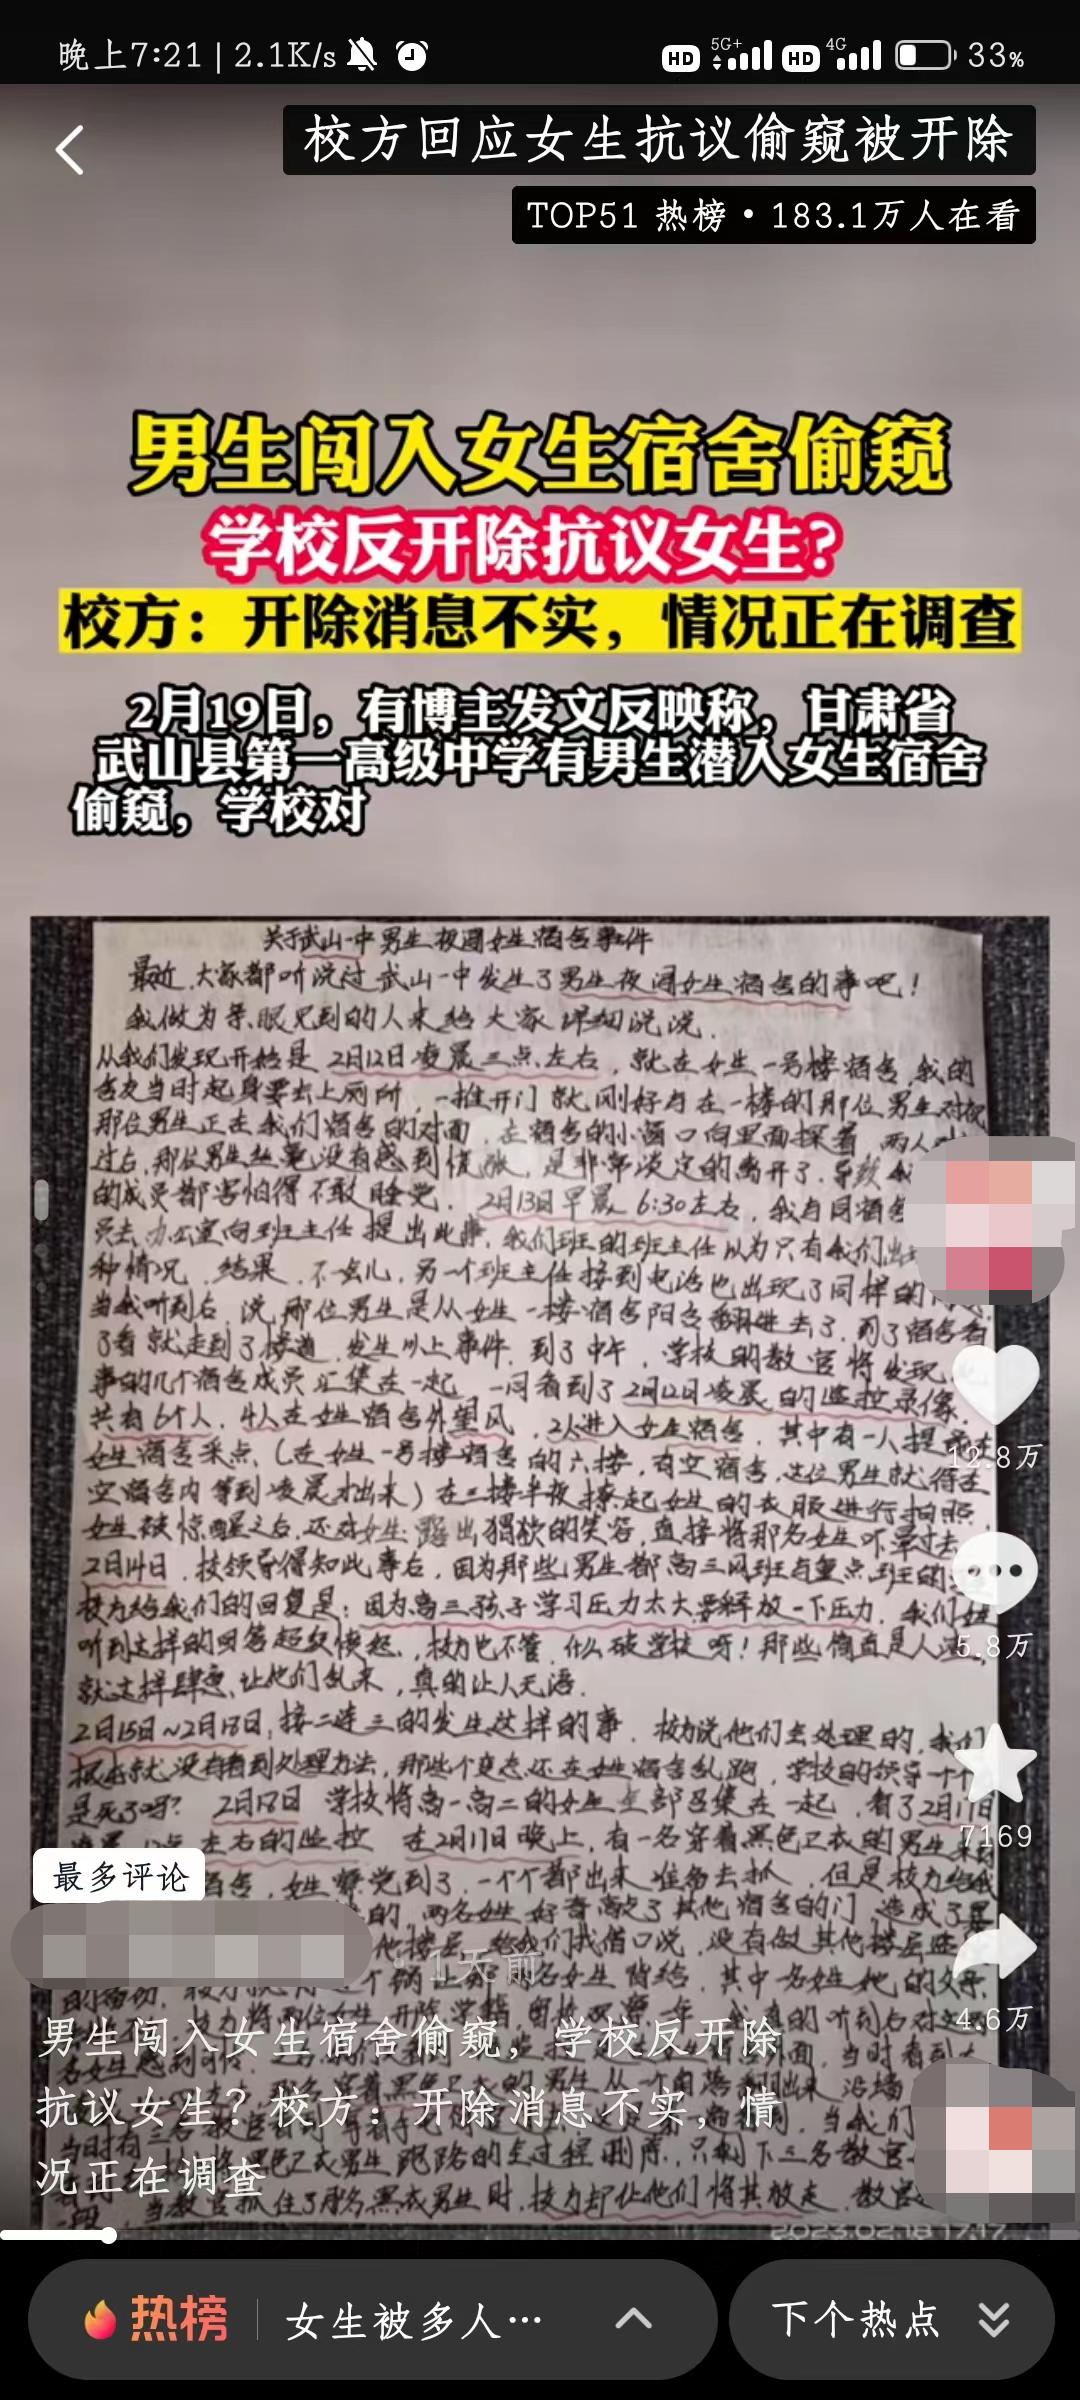 晚上7:21 | 2.1K/s
HD 5G+ HD 4G 33%
校方回应女生抗议偷窥被开除
TOP51 热榜·183.1万人在看
男生闯入女生宿舍偷窥
学校反开除抗议女生?
校方：开除消息不实，情况正在调查
2月19日，有博主发文反映称，甘肃省
武山县第一高级中学有男生潜入女生宿舍
偷窥，学校对
关于武山一中男生夜闯女生宿舍事件
最近,大家都听说过武山一中发生了男生夜闯女生宿舍的事吧!
我做为亲眼见到的人来给大家详细说说.
从我们发现开始是2月12日凌晨三点左右,就在女生一号楼宿舍,我的
舍友当时起身要去上厕所,一推开门就刚好与在一楼的那位男生对视
那位男生正在我们宿舍的对面,在宿舍的小窗口向里面探着,两人
过后,那位男生丝毫没有感到慌张,是非常淡定的离开了,导致
的成员都害怕得不敢睡觉. 2月13日早晨6:30左右,我与同宿舍
员去办公室向班主任提出此事,我们班的班主任以为只有我们出
种情况.结果,不一会儿,另一个班主任接到电话也出现了同样的
当我听到后,说那位男生是从女生一楼宿舍阳台翻进去了,到了宿舍看
了看就走到了楼道,发生以上事件.到了中午,学校的教官将发现
事的几个宿舍成员汇集在一起,一同看到了2月12日凌晨的监控录像,
共有6个人,4人在女生宿舍外望风,2人进入女生宿舍,其中有一人提
女生宿舍采点,(在女生一号楼宿舍的六楼,有空宿舍,这位男生就待在
空宿舍内等到凌晨才出来)在三楼半夜撩起女生的衣服进行拍照,
女生被惊醒之后,还对女生露出猥欲的笑容,直接将那名女生吓晕过去
2月14日,校领导得知此事后,因为那些男生都高三风班与重点班的
校方给我们的回复是:因为高三孩子学习压力太大要释放一下压力,我们
听到这样的回答超级愤怒,校方也不管,什么破学校呀!那些简直是人
就这样肆意,让他们乱来,真的让人无语.
2月15日~2月18日,接二连三的发生这样的事,校方说他们去处理的,我们
根本就没有看到处理方法,那些个变态还在女生宿舍乱跑,学校的领导一个
是死了吗? 2月18日 学校将高一高二的女生全部召集在一起,看了2月17日
左右的监控 在2月17日晚上,有一名穿着黑色卫衣的男生
宿舍,女生察觉到了,一个个都出来准备去抓,但是校方给我
的,两名女生好奇敲了其他宿舍的门 造成了
他楼层,给我们找借口说,没有做其他楼层
个锅让那两名女生背给,其中一名女生她的父亲
当教官抓住了那名黑衣男生时,校方却让他们将其放走,教官
2023.02.18 17:17
12.8万
5.8万
7169
4.6万
最多评论
· 1天前
男生闯入女生宿舍偷窥，学校反开除
抗议女生？校方：开除消息不实，情
况正在调查
热榜 | 女生被多人…
下个热点